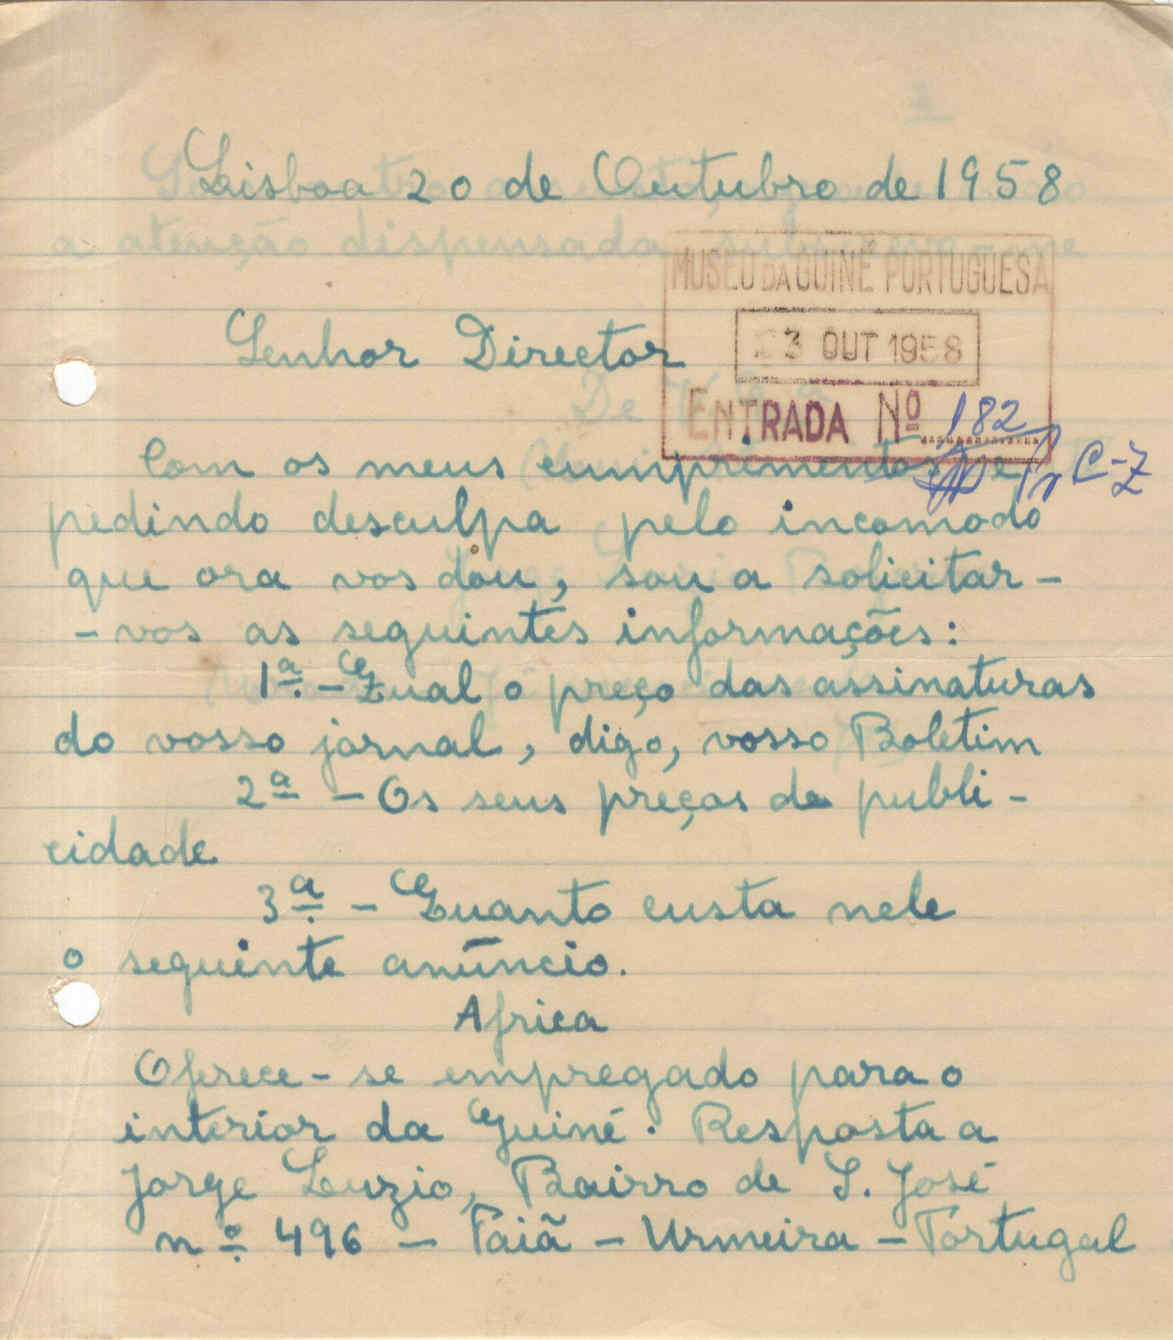 Lisboa 20 de Outubro de 1958
MUSEU DA GUINÉ PORTUGUESA
23 OUT 1958
ENTRADA Nº 182
Senhor Director
Com os meus cumprimentos e
C-Z
pedindo desculpa pelo incomodo
que ora vos dou, sou a solicitar-
-vos as seguintes informações:
1ª - Qual o preço das assinaturas
do vosso jornal, digo, vosso Boletim
2ª - Os seus preços de publi-
cidade
3ª - Quanto custa nele
o seguinte anúncio.
Africa
Oferece-se empregado para o
interior da Guiné. Resposta a
Jorge Luzio, Bairro de S. José
nº 496 - Paiã - Urmeira - Portugal